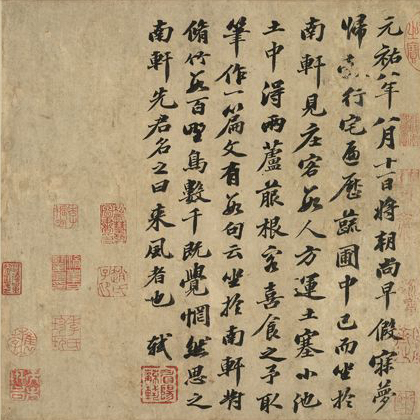 元祐八年八月十一日將朝尚早假寐夢
歸縠行宅遍歷蔬圃中已而坐於
南軒見庄客數人方運土塞小池
土中得兩蘆菔根客喜食之予取
筆作一篇文有數句云坐於南軒對
脩竹數百野鳥數千既覺惘然思之
南軒先君名之曰來風者也 軾